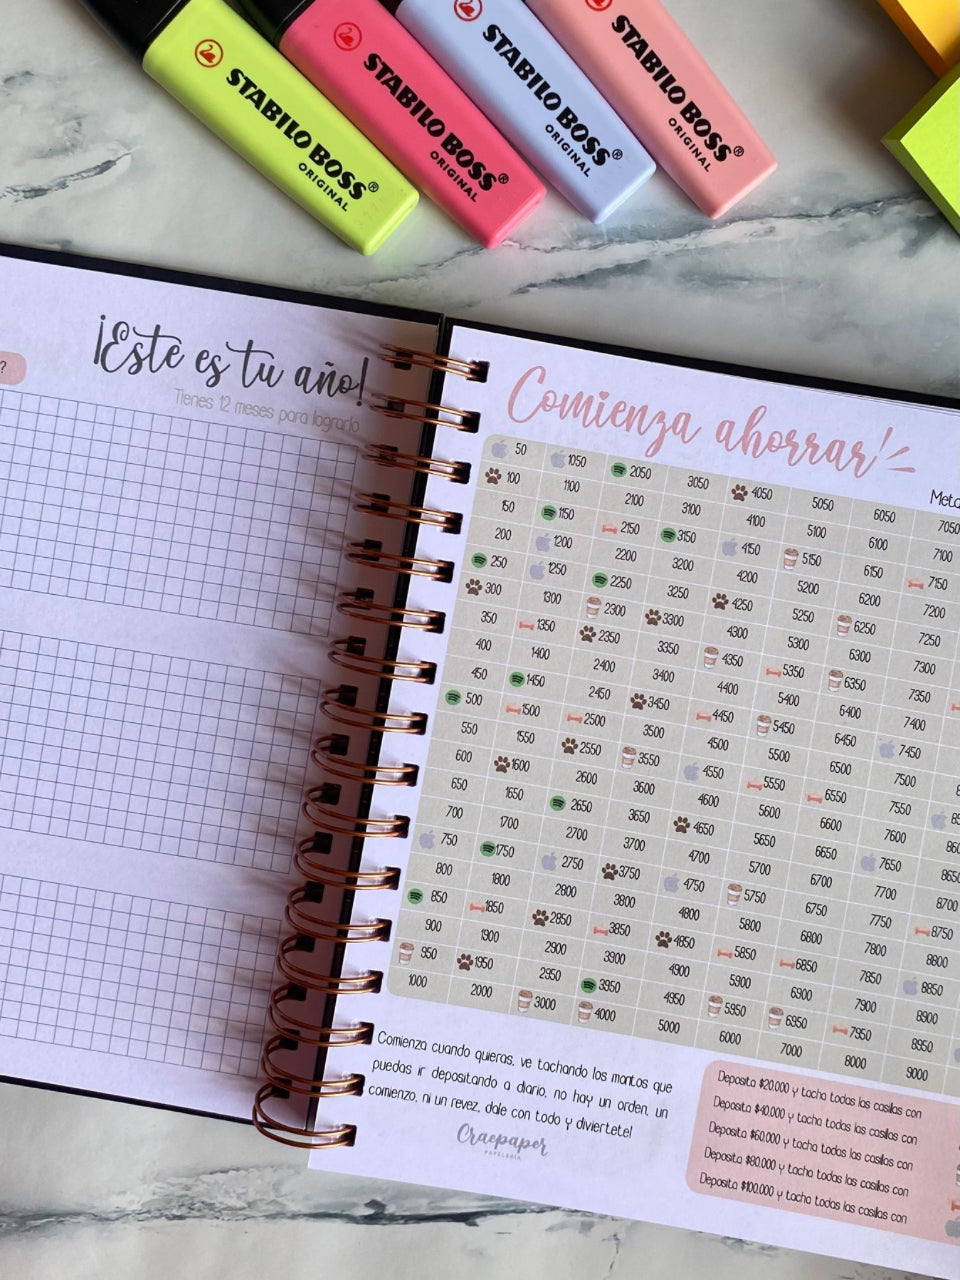 STABILO BOSS®
ORIGINAL
STABILO BOSS®
ORIGINAL
STABILO BOSS®
ORIGINAL
STABILO BOSS®
ORIGINAL
?
¡Este es tu año!
Tienes 12 meses para lograrlo
Comienza ahorrar
50 1050 2050 3050 4050 5050 6050 7050
100 1100 2100 3100 4100 5100 6100 7100
150 1150 2150 3150 4150 5150 6150 7150
200 1200 2200 3200 4200 5200 6200 7200
250 1250 2250 3250 4250 5250 6250 7250
300 1300 2300 3300 4300 5300 6300 7300
350 1350 2350 3350 4350 5350 6350 7350
400 1400 2400 3400 4400 5400 6400 7400
450 1450 2450 3450 4450 5450 6450 7450
500 1500 2500 3500 4500 5500 6500 7500
550 1550 2550 3550 4550 5550 6550 7550
600 1600 2600 3600 4600 5600 6600 7600
650 1650 2650 3650 4650 5650 6650 7650 8650
700 1700 2700 3700 4700 5700 6700 7700 8700
750 1750 2750 3750 4750 5750 6750 7750 8750
800 1800 2800 3800 4800 5800 6800 7800 8800
850 1850 2850 3850 4850 5850 6850 7850 8850
900 1900 2900 3900 4900 5900 6900 7900 8900
950 1950 2950 3950 4950 5950 6950 7950 8950
1000 2000 3000 4000 5000 6000 7000 8000 9000
Comienza cuando quieras, ve tachando los montos que
puedas ir depositando a diario, no hay un orden, un
comienzo, ni un revez, dale con todo y diviertete!
Craepaper
PAPELERÍA
Deposita $20.000 y tacha todas las casillas con
Deposita $40.000 y tacha todas las casillas con
Deposita $60.000 y tacha todas las casillas con
Deposita $80.000 y tacha todas las casillas con
Deposita $100.000 y tacha todas las casillas con